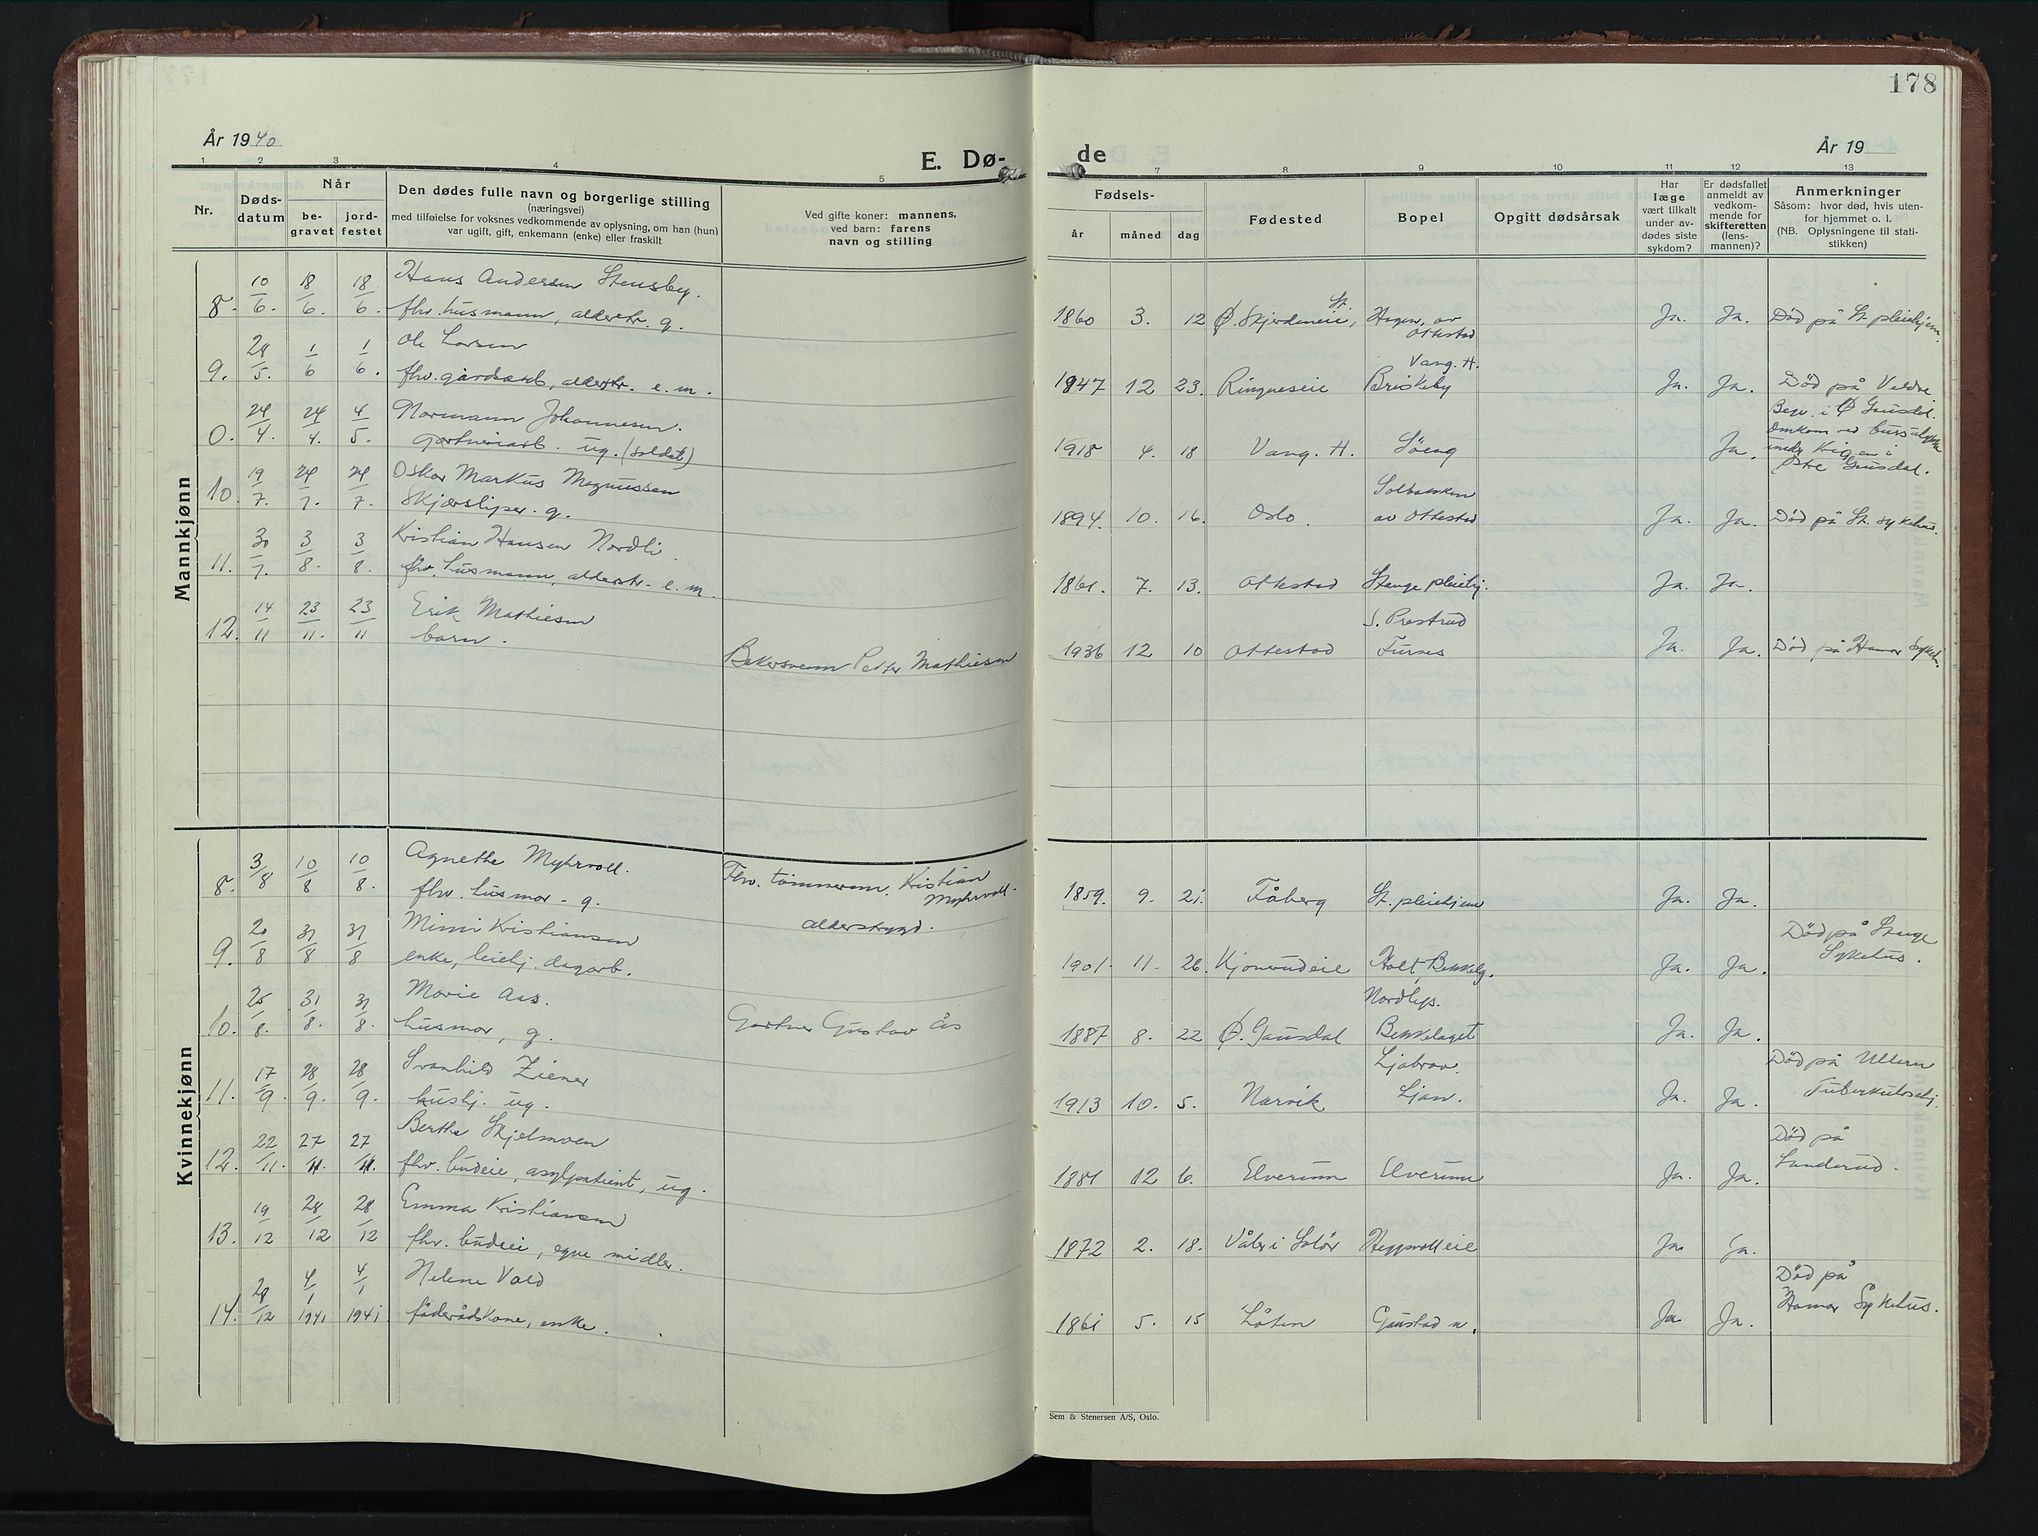 178
År 1940
E. Dø-
de
År 19
1 2 3 4 5
7 8 9 10 11 12 13
Nr.
Døds-
datum
Når
be-
gravet
jord-
festet
Den dødes fulle navn og borgerlige stilling
(næringsvei)
med tilføielse for voksnes vedkommende av oplysning, om han (hun)
var ugift, gift, enkemann (enke) eller fraskilt
Ved gifte koner: mannens,
ved barn: farens
navn og stilling
Fødsels-
år måned dag
Fødested
Bopel
Opgitt dødsårsak
Har
læge
vært tilkalt
under av-
dødes siste
sykdom?
Er dødsfallet
anmeldt av
vedkom-
mende for
skifteretten
(lens-
mannen)?
Anmerkninger
Såsom: hvor død, hvis uten-
for hjemmet o. l.
(NB. Oplysningene til stati-
stikken)
Mannkjønn
8. 10/6. 18/6. 18/6. Hans Andersen Stensby.
fhv. husmann, alderstr. g.
1860 3. 12 Ø. Skjerdeneie, St. Hagen, av
Ottestad
Ja. Ja. Død på St. pleiehjem.
9. 28/5. 1/6 1/6. Ole Larsen
fhv. gårdsarb., alderstr. e. m.
1847 12 23. Ringneseie Vang. H.
Briskeby
Ja. Ja. Død på Veldre.
0. 24/4. 24/4. 4/5. Normann Johannesen.
gartneriarb. ug. (soldat)
1918 4. 18 Vang. H. Løeng
Ja. Begr. i Ø Gausdal.
Omkom ved bussulykke
under Krigen i
Østre Gausdal.
10. 19/7. 24/7. 24/7. Oskar Markus Magnussen
Skjærsliper. g.
1894. 10. 16. Oslo. Solbakken
av Ottestad
Ja. Ja. Død på St. sykehus.
11. 30/7. 3/8. 3/8. Kristian Hansen Nordli.
fhv. husmann, alderstr. e. m.
1861. 7. 13. Ottestad Stange pleiehj.
Ja. Ja.
12. 14/11 23/11. 23/11 Erik Mathiesen
barn.
Bakersvenn Petter Mathiesen
1936 12 10 Ottestad S. Prestrud
Furnes
Ja. Ja. Død på Hamar Sykeh.
Kvinnekjønn
8. 3/8 10/8 10/8. Agnethe Myhrvoll.
fhv. husmor - g.
Fhv. tømmerm. Kristian
Myhrvoll.
alderstrygd.
1859. 9. 21. Fåberg St. pleiehjem
Ja. Ja.
9. 20/8 31/8 31/8 Mimi Kristiansen
enke, leiehj. dagarb.
1901. 11. 26. Kjonerudeie Holt, Bekkelg.
Ja. Ja. Død på Stange
Sykehus.
10. 25/8. 31/8. 31/8. Marie Aas.
husmor, g.
Gartner Gustav Ås
1887 8. 22 Ø. Gausdal Nordlys.
Bekkelaget
Ja. Ja.
11. 17/9. 28/9. 28/9. Svanhild Ziener
hushj. ug.
1913 10. 5. Narvik Ljabrov.
Ljan.
Ja. Ja. Død på Ullern
Tuberkulosehj.
12. 22/11. 27/11. 27/11. Berthe Skjelmoen
fhv. budeie, asylpatient, ug.
1881 12 6. Elverum Elverum
Ja. Ja. Død på
Sanderud.
13. 19/12 28/12 28/12 Emma Kristiansen
fhv. budeie, egne midler.
1872 2. 18. Våler i Solør Heggvolleie
Ja. Ja.
14. 28/12 4/1 1941 4/1 1941 Helene Vold
føderådskone, enke.
1861 5. 15 Løten Gaustad n.
Ja. Ja. Død på
Hamar Sykehus.
Sem & Stenersen A/S, Oslo.